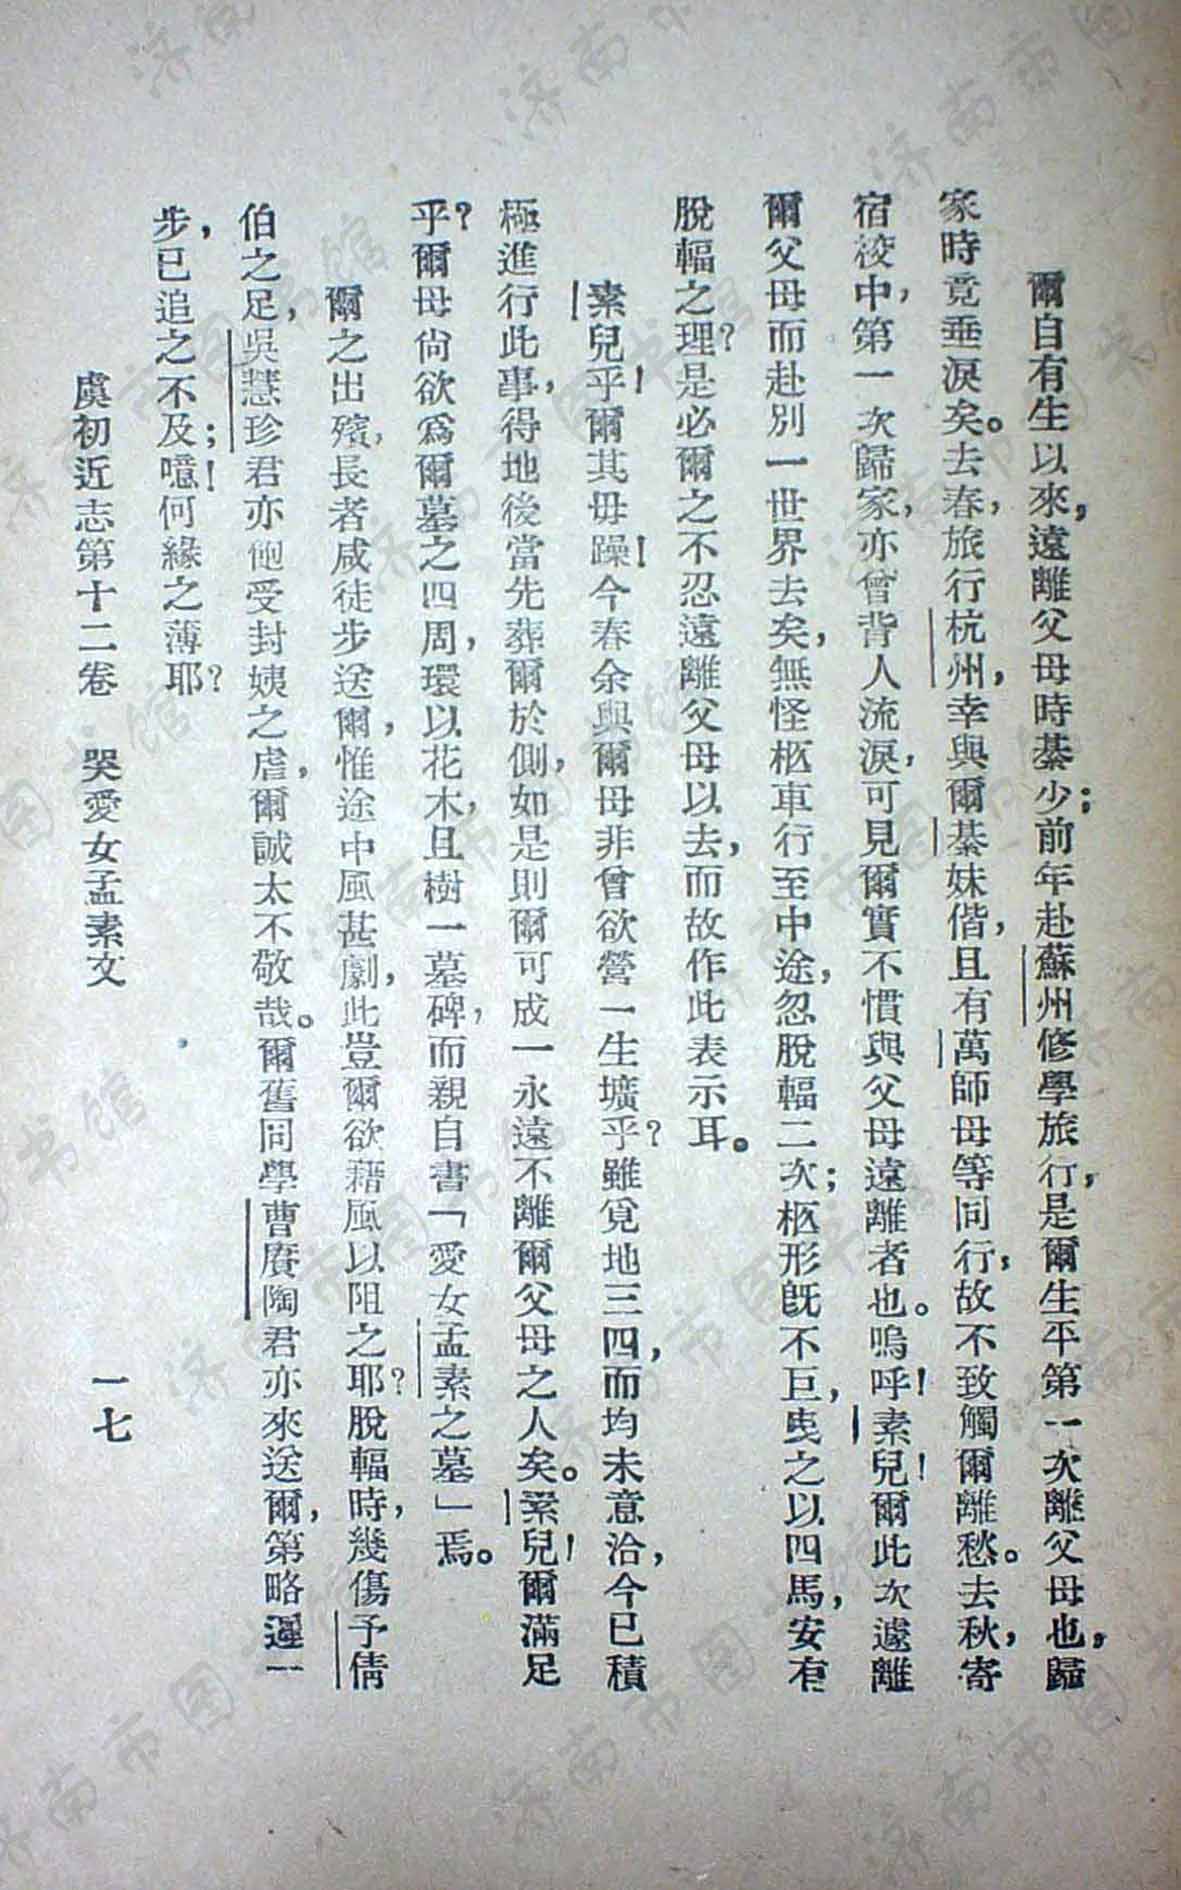 爾自有生以來，遠離父母時綦少；前年赴蘇州修學旅行，是爾生平第一次離父母也，歸
家時竟垂淚矣。去春，旅行杭州，幸與爾綦妹偕，且有萬師母等同行，故不致觸爾離愁。去秋，寄
宿校中，第一次歸家，亦曾背人流淚，可見爾實不慣與父母遠離者也。嗚呼！素兒！爾此次遽離
爾父母而赴別一世界去矣，無怪柩車行至中途，忽脫輻二次；柩形既不巨，曳之以四馬，安有
脫輻之理？是必爾之不忍遠離父母以去，而故作此表示耳。
素兒乎！爾其毋躁！今春余與爾母非曾欲營一生壙乎？雖覓地三四，而均未意洽，今已積
極進行此事，得地後當先葬爾於側，如是則爾可成一永遠不離爾父母之人矣。素兒！爾滿足
乎？爾母尙欲爲爾墓之四周，環以花木，且樹一墓碑，而親自書「愛女孟素之墓」焉。
爾之出殯，長者咸徒步送爾，惟途中風甚劇，此豈爾欲藉風以阻之耶？脫輻時，幾傷予倩
伯之足，吳慧珍君亦飽受封姨之虐，爾誠太不敬哉。爾舊同學曹賡陶君亦來送爾，第略遲一
步，已追之不及；噫！何緣之薄耶？
虞初近志第十二卷　哭愛女孟素文　一七
济南市图书馆